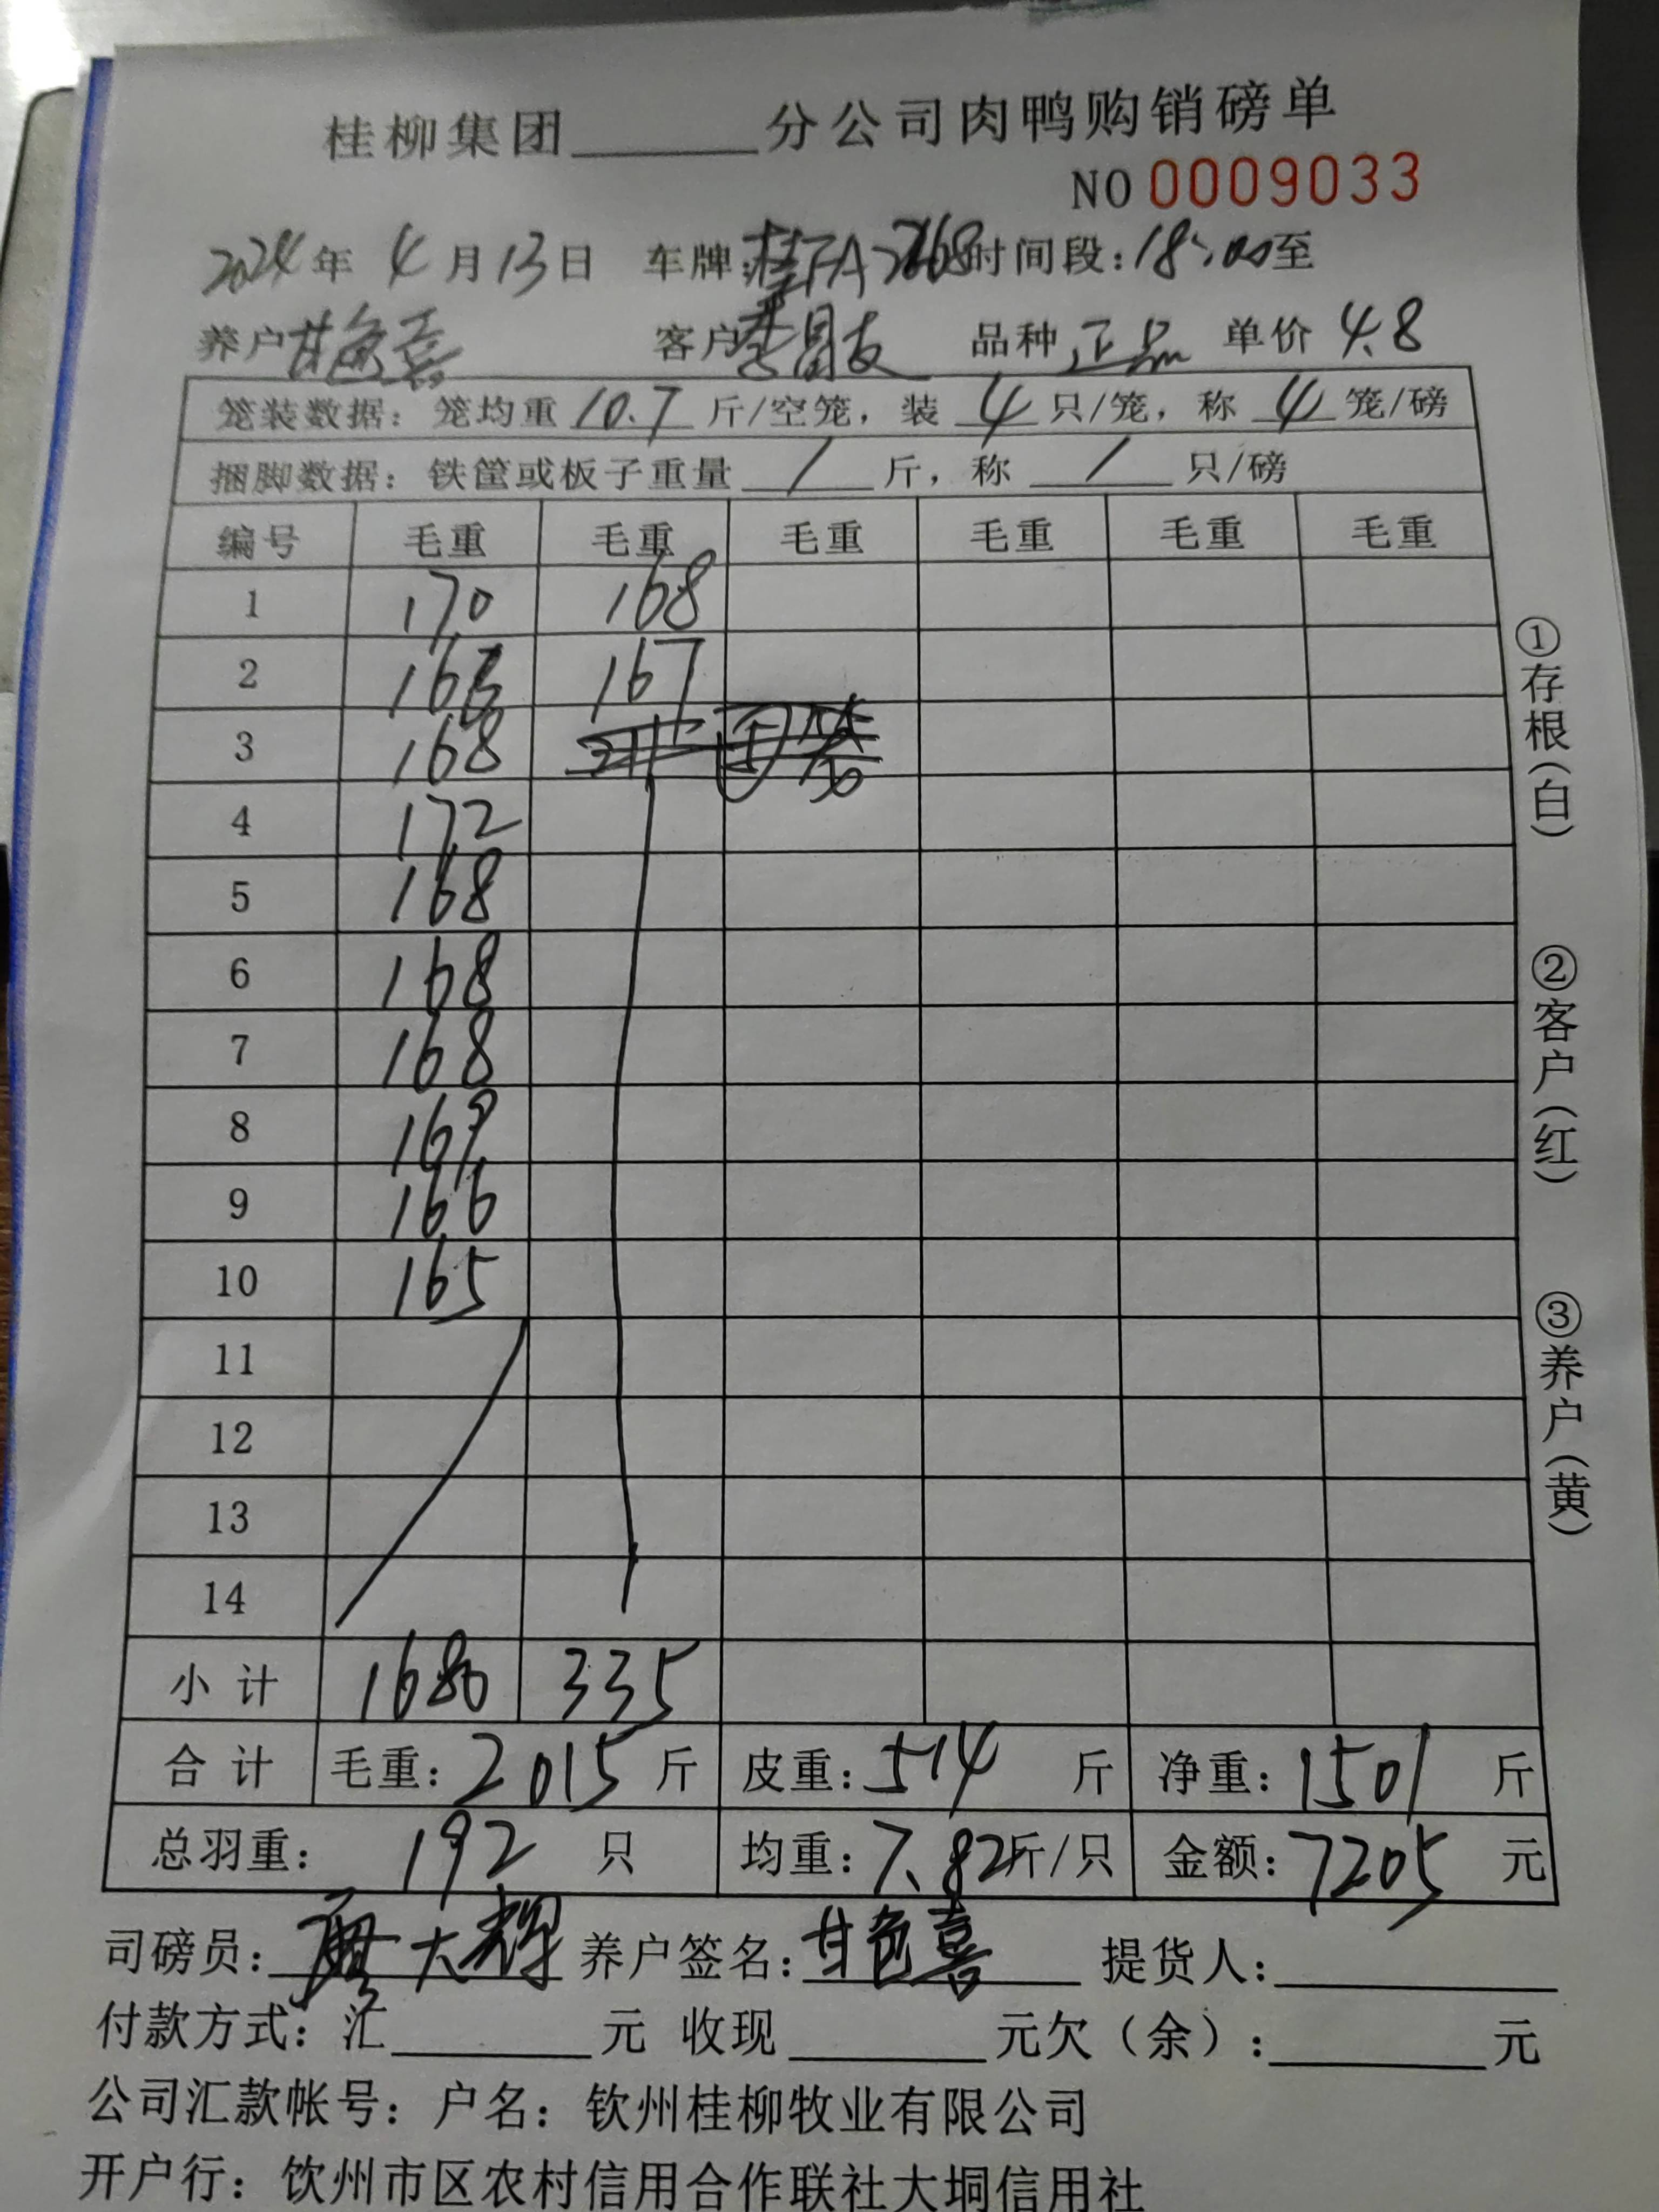 桂柳集团______分公司肉鸭购销磅单
NO 0009033
2024年 4月13日 车牌: 时间段:18:00至
养户甘色喜 客户李昌友 品种 正品 单价 4.8
笼装数据: 笼均重 10.7 斤/空笼, 装 4 只/笼, 称 4 笼/磅
捆脚数据: 铁筐或板子重量 / 斤, 称 / 只/磅
编号 毛重 毛重 毛重 毛重 毛重 毛重
1 170 168
2 167
3 168
4 172
5 168
6 168
7 168
8 169
9 166
10 165
11
12
13
14
小计 1680 335
合计 毛重: 2015 斤 皮重: 514 斤 净重: 1501 斤
总羽重: 192 只 均重: 7.82斤/只 金额: 7205 元
司磅员: 廖大辉 养户签名: 甘色喜 提货人:______
付款方式: 汇______元 收现______元欠(余):______元
公司汇款帐号: 户名: 钦州桂柳牧业有限公司
开户行: 钦州市区农村信用合作联社大垌信用社
①存根(白)
②客户(红)
③养户(黄)